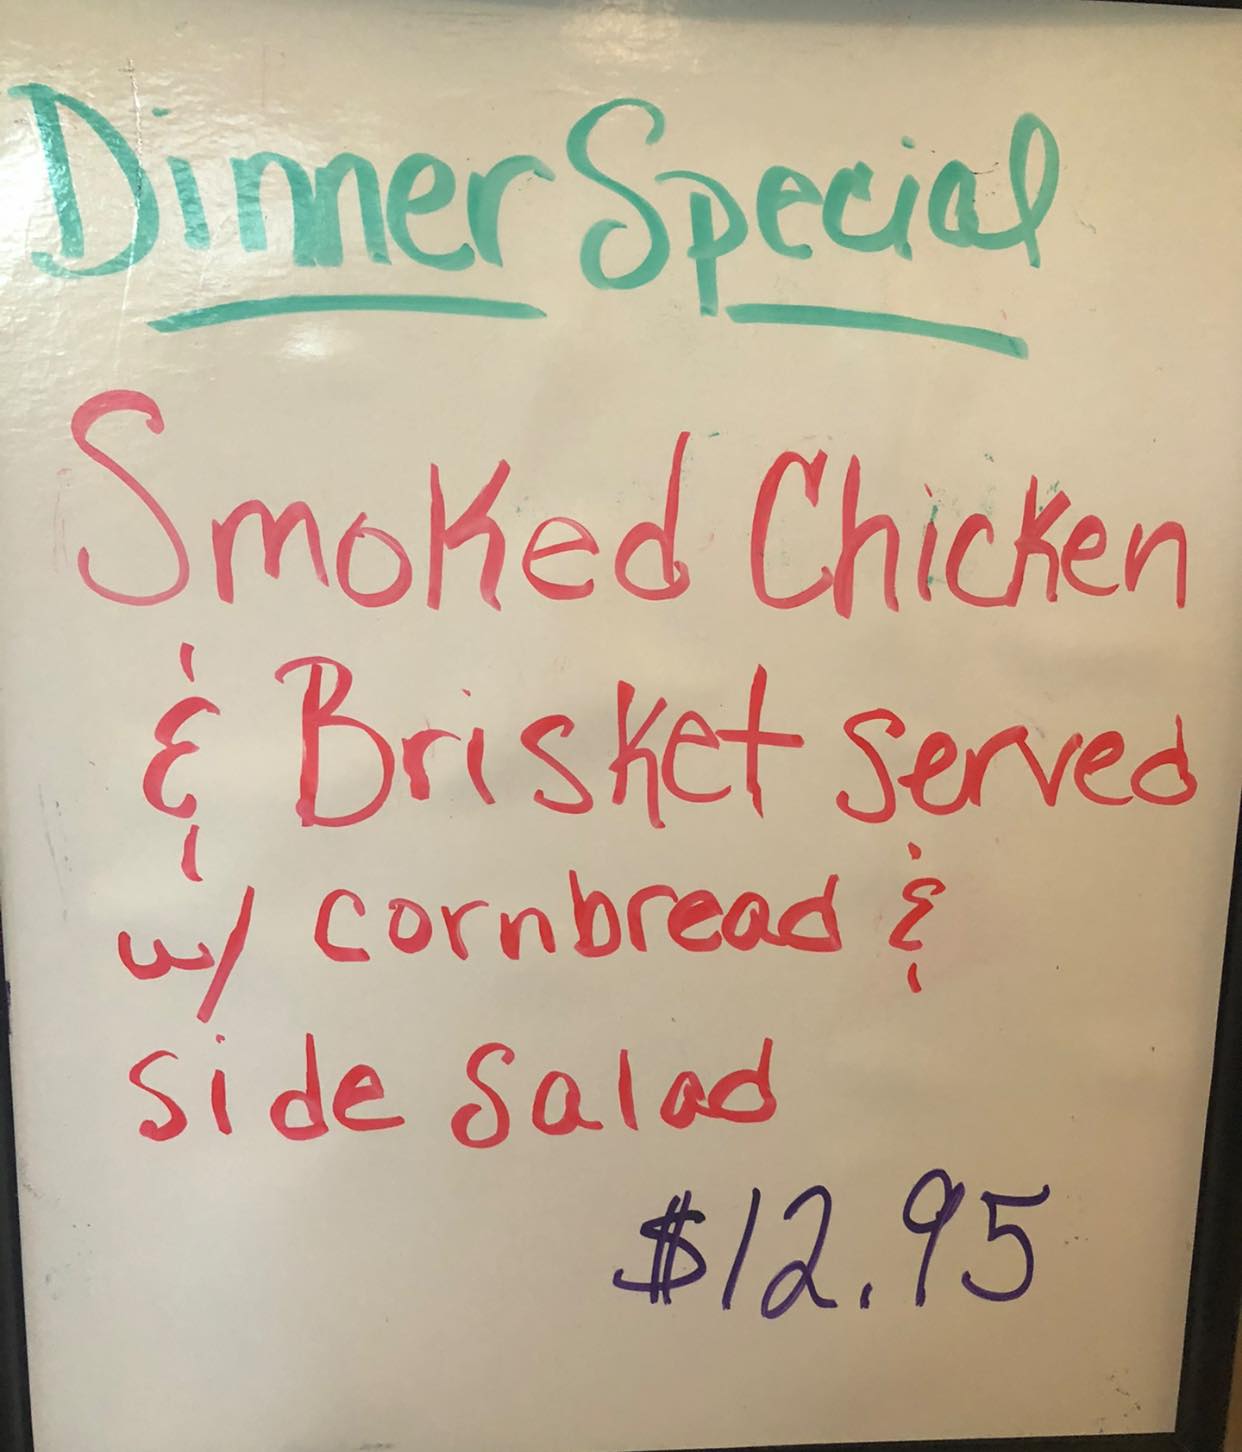 Dinner Special
Smoked Chicken
& Brisket served
w/ cornbread &
side salad
$12.95